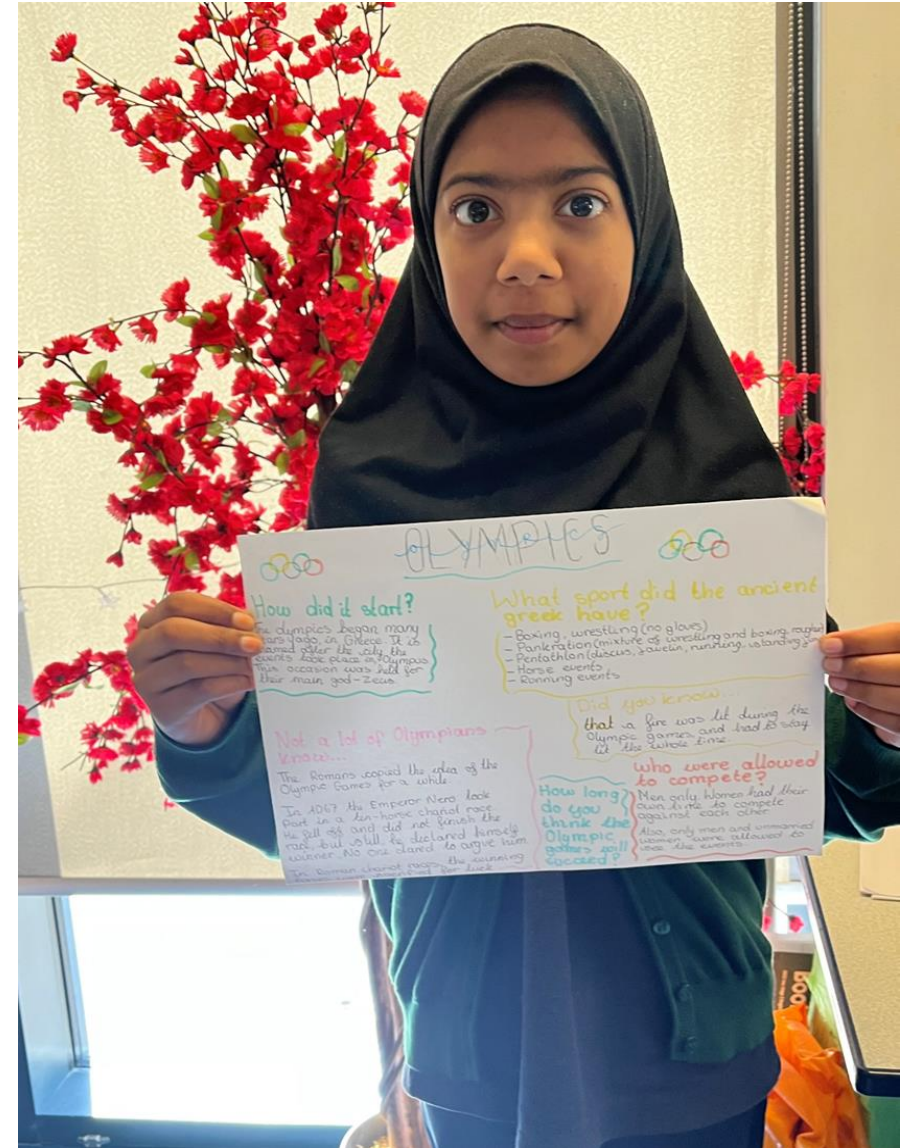 OLYMPICS
How did it start?
The olympics began many
years ago, in Greece. It is
named after the city the
events took place in, Olympus
This occasion was held for
their main god - Zeus.
What sport did the ancient
greek have?
- Boxing, wrestling (no gloves)
- Pankration (mixture of wrestling and boxing, rougher)
- Pentathlon (discus, javelin, running, standing
- Horse events
- Running events
Did you know...
that a fire was lit during the
Olympic games and had to stay
lit the whole time.
Not a lot of Olympians
know...
The Romans copied the idea of the
Olympic Games for a while.
In 1067 the Emperor Nero took
Part in a ten-horse chariot race
He fell off and did not finish the
race but still he declared himself
winner. No one dared to argue him
In Roman chariot races, the winning
for luck
How long
do you
think the
Olympic
games will
succeed?
who were allowed
to compete?
Men only. Women had their
own time to compete
against each other
Also, only men and unmarried
women were allowed to
the events.
BOO